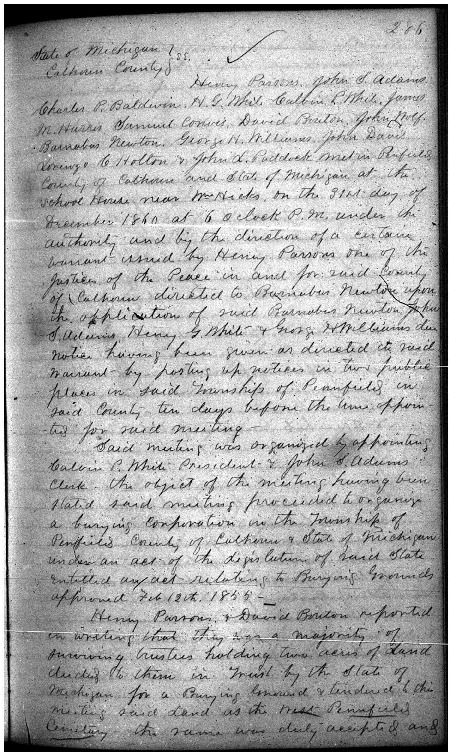 286
State of Michigan } ss.
Calhoun County }
Henry Parsons, John S. Adams
Charles P. Baldwin, H. G. White, Calvin P. White, James
M. Harris, Samuel Convis, David Boulon, John Wolf,
Barnabas Newton, George H. Williams, John Davis
C Holton & John L. Paddock met in Penfield,
County of Calhoun and State of Michigan at the
School House near Wm Hicks, on the 31st day of
December 1860 at 6 O'clock P.M. under the
authority and by the direction of a certain
warrant issued by Henry Parsons one of the
Justices of the Peace in and for said County
of Calhoun directed to Barnabas Newton upon
the application of said Barnabas Newton, John
S. Adams, Henry G. White & George H Williams due
notice having been given as directed in said
warrant by posting up notices in two public
places in said Township of Pennfield in
said County ten days before the time appoin-
ted for said meeting -
Said meeting was organized by appointing
Calvin P. White President & John S. Adams
Clerk - the object of the meeting having been
stated said meeting proceeded to organize
a burying corporation in the Township of
Penfield County of Calhoun & State of Michigan
under an act of the legislature of said State
entitled an act relating to Burying Grounds
approved Feb 12th, 1855 -
Henry Parsons, & David Boulon reported
in writing that they was a majority of
surviving trustees holding two acres of Land
deeded to them in Trust by the State of
Michigan for a Burying Ground & tendered to this
meeting said Land as the West Pennfield
Cemetery the same was duly accepted and